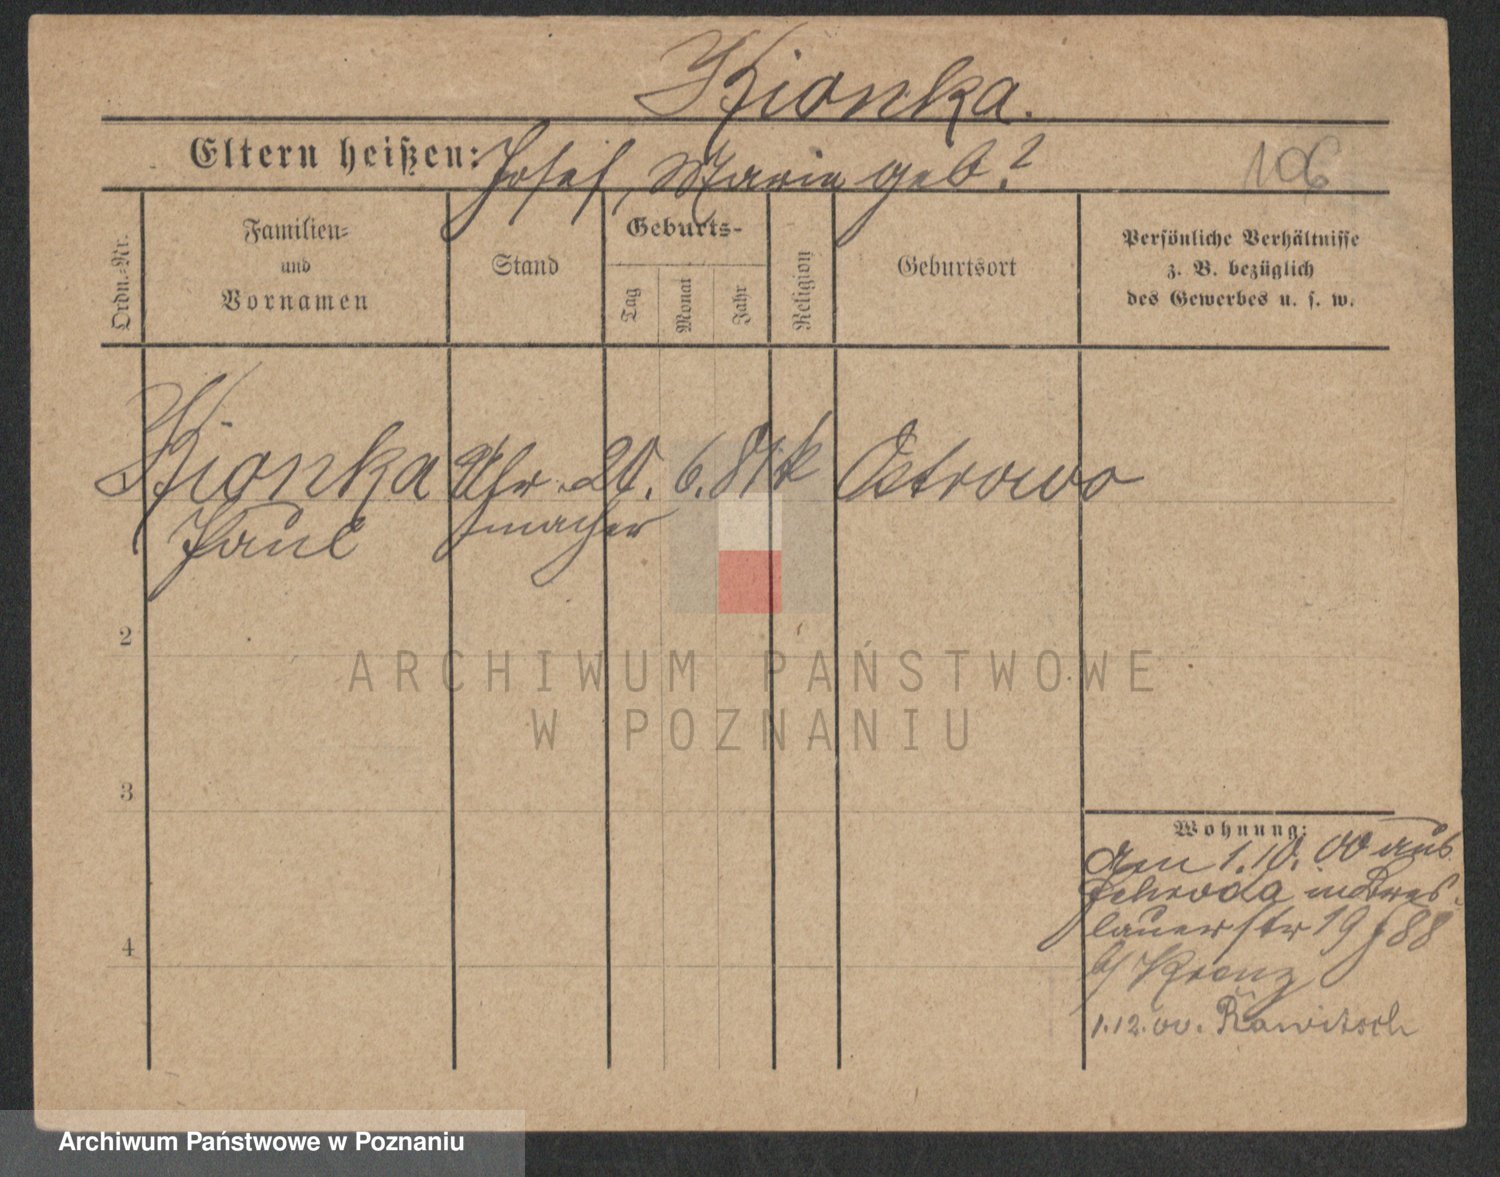 Kionka.
Eltern heißen: Josef, Maria geb. ?
106
Ordn.-Nr.
Familien-
und
Vornamen
Stand
Geburts-
Tag
Monat
Jahr
Religion
Geburtsort
Persönliche Verhältnisse
z. B. bezüglich
des Gewerbes u. s. w.
Kionka Uhr- 20. 6. 81 k Ostrowo
Paul macher
2
3
4
ARCHIWUM PAŃSTWOWE
W POZNANIU
Wohnung:
Am 1.10.00 aus
Schroda in Bres-
lauerstr 19 88
b/ Kranz
1.12.00. Rawitsch
Archiwum Państwowe w Poznaniu